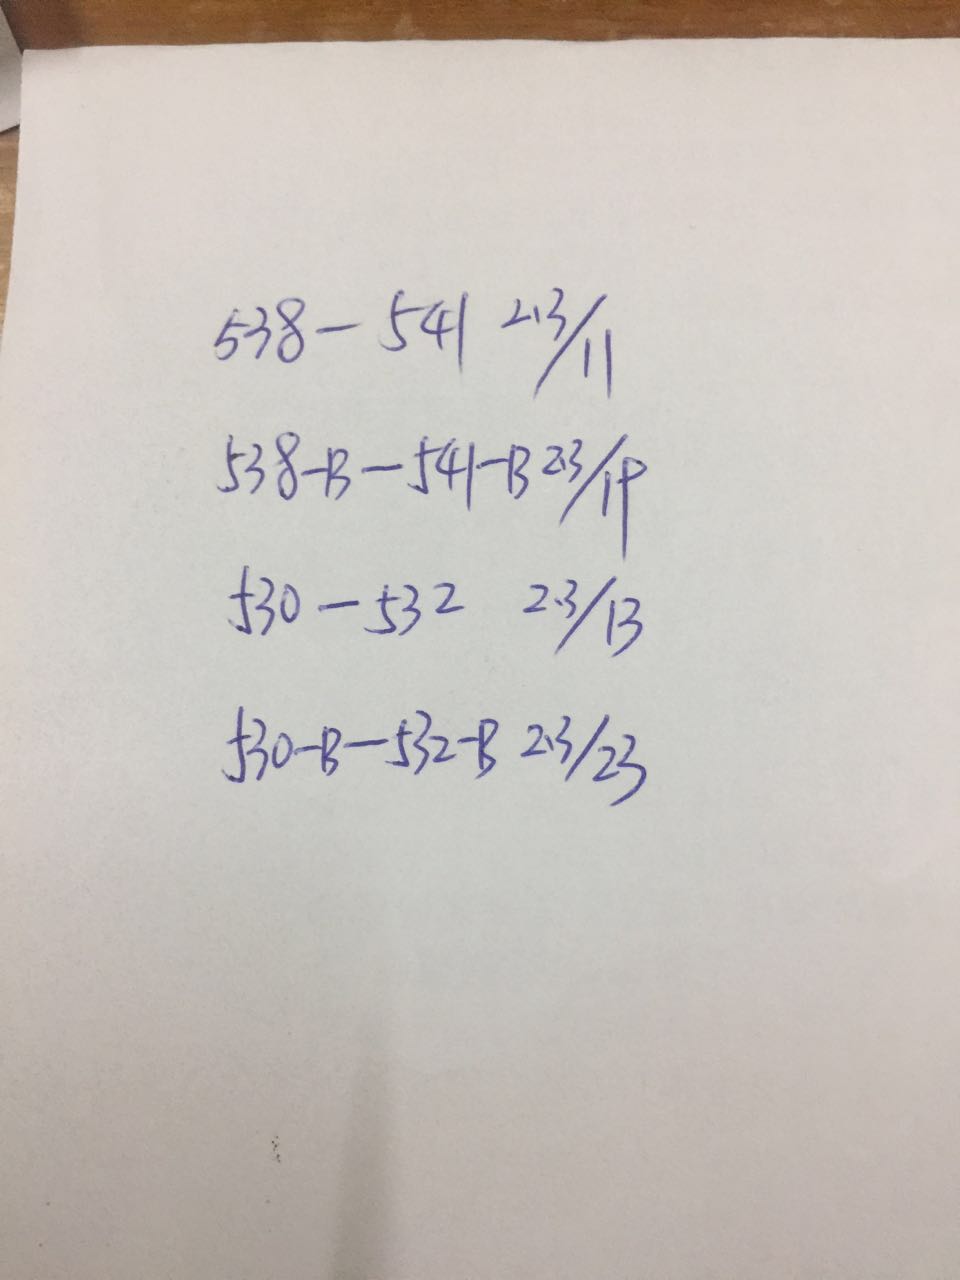 538 – 541 2.3/11
538-B – 541-B 2.3/19
530 – 532 2.3/13
530-B – 532-B 2.3/23